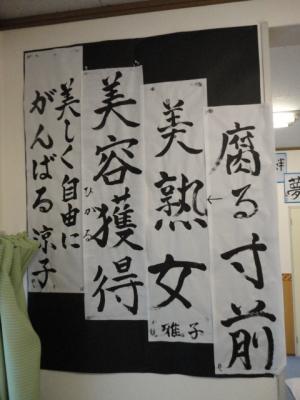 腐る寸前
←
美熟女
雅子
美容獲得
ひかる
美しく自由に
がんばる涼子
夢